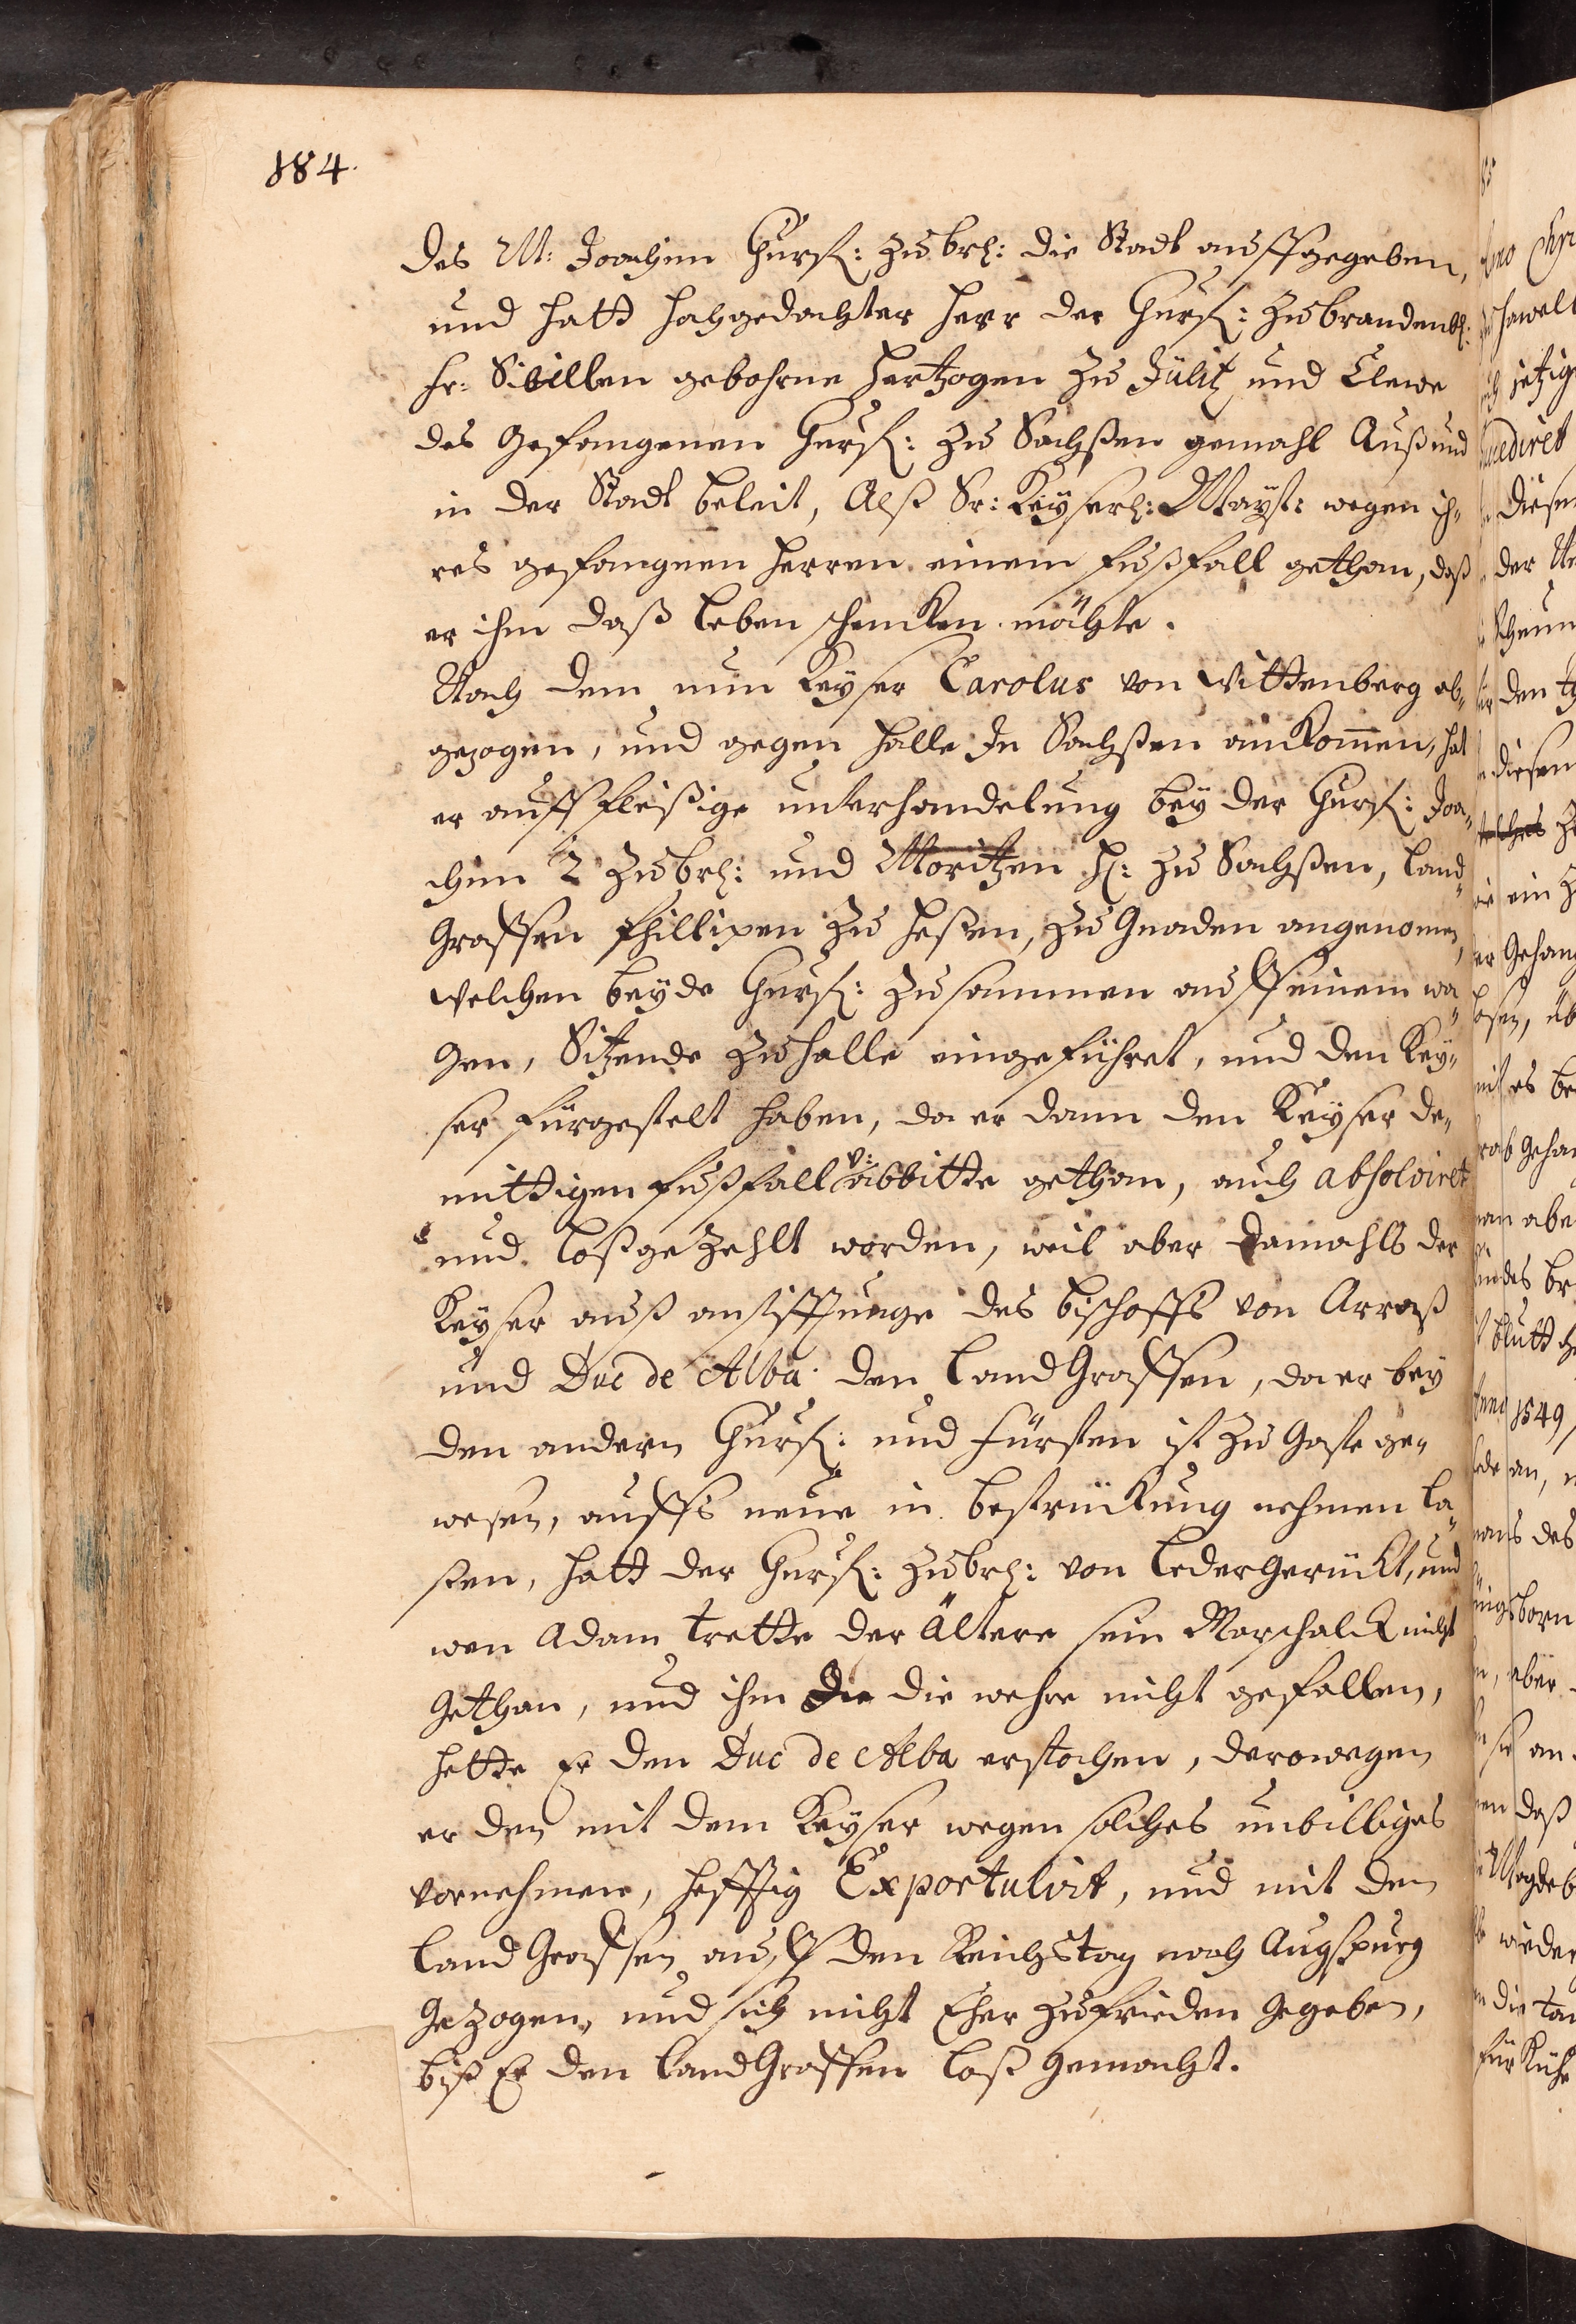 184.
des M: Joachim Churf: zu brl: die Stadt auffgegeben,
und hatt hochgedachter herr der Churf: zu brandenbl:
fr: Sibillen gebohrne hertzogen zu Jülich und Cleve
des gefangenen Churf: zu Sachßen gemahl Auß und
in der Stadt beleit, Alß Sr: Keyserl: Mayst: wegen ih-
res gefangnen herren einem fußfall gethan, daß
er ihm daß leben schencken möchte.
Nach dem nun Keyser Carolus von Wittenberg ab-
gezogen, und gegen halle In Sachßen ankommen, hat
er auff fleißige unterhandelung bey der Churf: Joa-
chim 2 zu brl: und Moritzen H: zu Sachßen, land-
Graffen Phillipen zu heßen, zu Gnaden angenomen,
welchen beyde Churf: zusammen auff einem wa-
gen, Sitzende zu halle eingeführet, und den Key-
ser fürgestelt haben, da er dann den Keyser de-
müttigen fußfall v: abbitte gethan, auch absolviret
und loßgezehlt worden, weil aber damahls der
Keyser auß anstifftunge des bischoffs von Arraß
und Duc de Alba den land Graffen, da er bey
den andern Churf: und fürsten ist zu Gaste ge-
wesen, auffs neue in bestrückung nehmen la-
ßen, hatt der Churf: zu brl: von leder gerückt, und
wen Adam trotte der Ältere sein Marschalck nicht
gethan, und ihm die die wehre nicht gefallen,
hette Er den Duc de Alba erstochen, derowegen
er den mit dem Keyser wegen solches unbilliges
vornehmen, hefftig Expostulirt, und mit dem
land Graffen auff den Reichstag nach Augspurg
gezogen, und sich nicht Eher zufrieden gegeben,
biß Er den land Graffen loß gemacht.